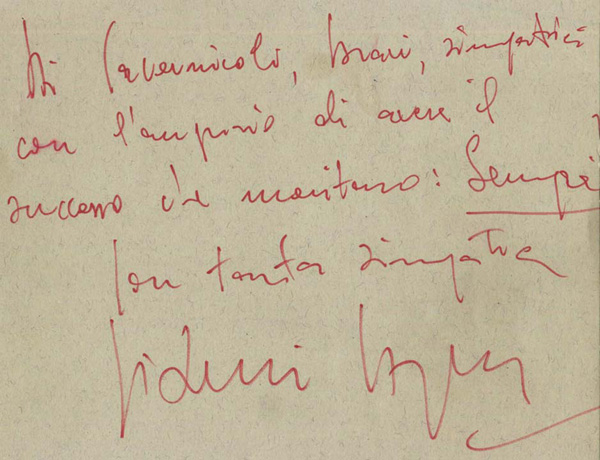 Ai Cavernicoli, bravi, simpatici
con l'augurio di avere il
successo che meritano: Sempre
Con tanta simpatia